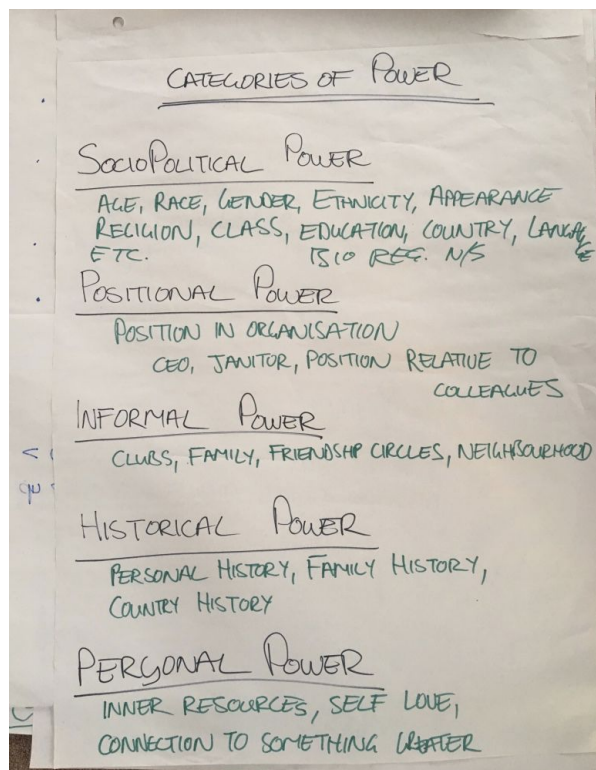 CATEGORIES OF POWER
SOCIOPOLITICAL POWER
AGE, RACE, GENDER, ETHNICITY, APPEARANCE
RELIGION, CLASS, EDUCATION, COUNTRY, LANGAGE
ETC. BIO REG. N/S
POSITIONAL POWER
POSITION IN ORGANISATION
CEO, JANITOR, POSITION RELATIVE TO
COLLEAGUES
INFORMAL POWER
CLUBS, FAMILY, FRIENDSHIP CIRCLES, NEIGHBOURHOOD
HISTORICAL POWER
PERSONAL HISTORY, FAMILY HISTORY,
COUNTRY HISTORY
PERSONAL POWER
INNER RESOURCES, SELF LOVE,
CONNECTION TO SOMETHING GREATER